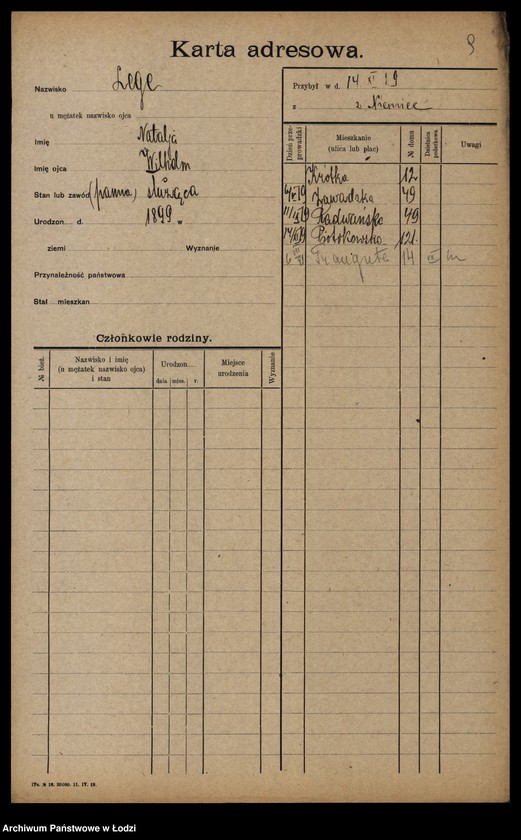 Karta adresowa.
9
Nazwisko Lege
u mężatek nazwisko ojca
Imię Natalja
Imię ojca Wilhelm
Stan lub zawód (panna) służąca
Urodzon d. 1899 w
ziemi Wyznanie
Przynależność państwowa
Stał mieszkan
Przybył w d. 14 XI 19
z z Niemiec
Dzień przeprowadzki
Mieszkanie
(ulica lub plac)
№ domu
Dzielnica podatkowa
Uwagi
Krótka 12
Zawadzka 49
Radwańska 49
Piotrkowska 121
Traugutta 14
Członkowie rodziny.
№ bież.
Nazwisko i imię
(u mężatek nazwisko ojca)
i stan
Urodzon
dnia mies. r.
Miejsce
urodzenia
Wyznanie
Archiwum Państwowe w Łodzi